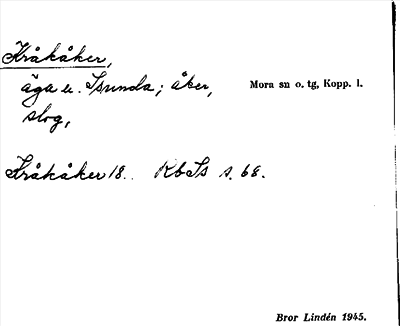 Kråkåker,
äga u. Isunda; åker,
Mora sn o. tg, Kopp. l.
slog,
Kråkåker 18.. RbIs s. 68.
Bror Lindén 1945.